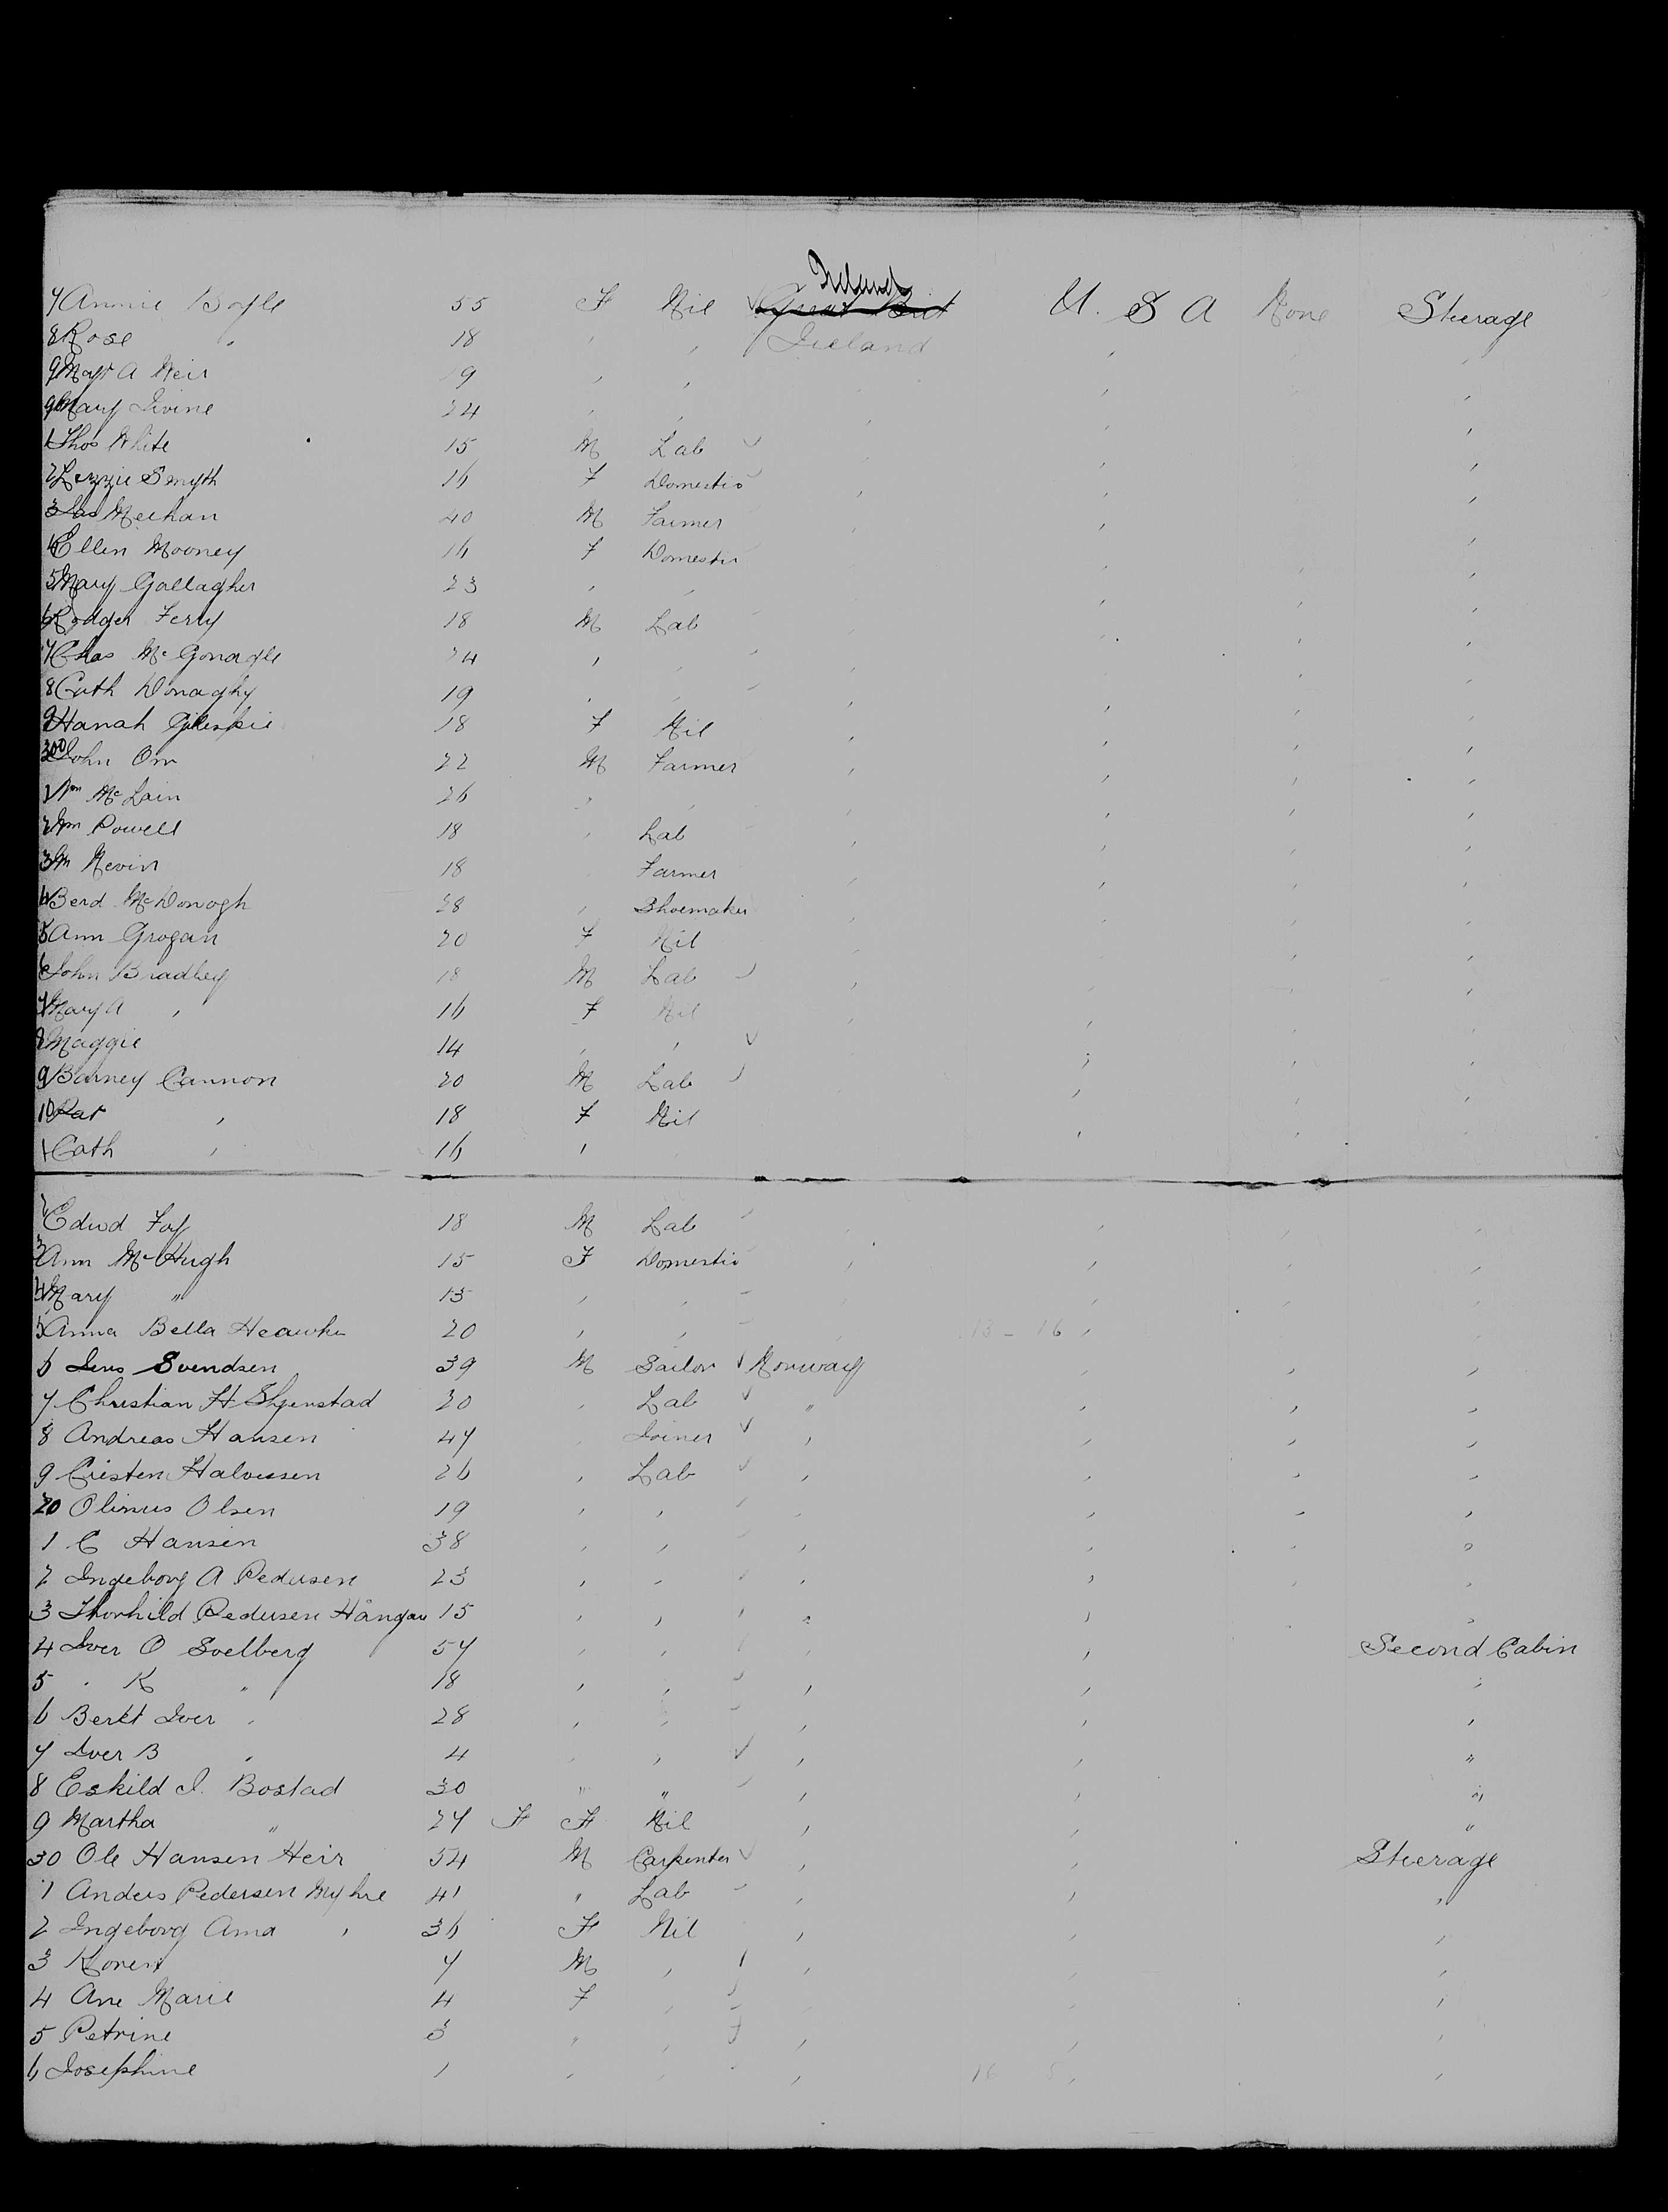 Ireland
7 Annie Boyle 55 F Nil √ Great Brit U. S A None Steerage
8 Rose " 18 " " Ireland " "
9 Mary A Weir 19 " " "
9 Mary Irvine 24 " " "
1 Thos White 15 M Lab √ "
2 Lizzie Smyth 16 F Domestic "
3 Jas Meehan 40 M Farmer "
4 Ellen Mooney 16 F Domestic "
5 Mary Gallagher 23 " " "
6 Rodger Ferry 18 M Lab "
7 Chas Mc Gonagle 24 " " "
8 Cath Donaghy 19 " " "
9 Hanah Gillespie 18 F Nil "
300 John Orr 22 M Farmer "
1 Wm Mc Lain 26 " " "
2 Wm Powell 18 " Lab "
3 Wm Nevin 18 Farmer "
4 Berd McDonogh 28 " Shoemaker "
5 Ann Grogan 20 F Nil "
6 John Bradley 18 M Lab "
7 Mary A " 16 F Nil "
8 Maggie 14 " " √ "
9 Barney Cannon 20 M Lab "
10 Pat " 18 F Nil "
1 Cath " 16 "
2 Edwd Foy 18 M Lab "
3 Ann McHugh 15 F Domestic "
4 Mary " 13 " " "
5 Anna Bella 20 " " " 13 - 16 "
6 Jens Svendsen 39 M Sailor √ Norway " " "
7 Christian H 20 " Lab √ " " " "
8 Andreas Hansen 47 Joiner √ " " " "
9 Cristen Halvessen 26 " Lab √ " " " "
20 Olinus Olsen 19 " " " " " "
1 C Hansen 38 " " " " " "
2 Ingeborg A Pedersen 23 " " " "
3 Thorhild Pedersen 15 " " " "
4 Iver O Soelberg 57 " " " " Second Cabin
5 " K " 18 " " " " "
6 Berit Iver " 28 " " " " "
7 Iver B " 4 " √ " " "
8 Eskild J. Bostad 30 " " " " "
9 Martha " 27 F F Nil " " "
30 Ole Hansen Heir 54 M Carpenter √ " " Steerage
1 Anders Pedersen Myhre 41 " Lab " " "
2 Ingeborg Ama " 36 F Nil " " "
3 7 M " " " "
4 Ane Marie 4 F " " "
5 Petrine 3 " " " " "
6 Josephine 1 " " " 16 "